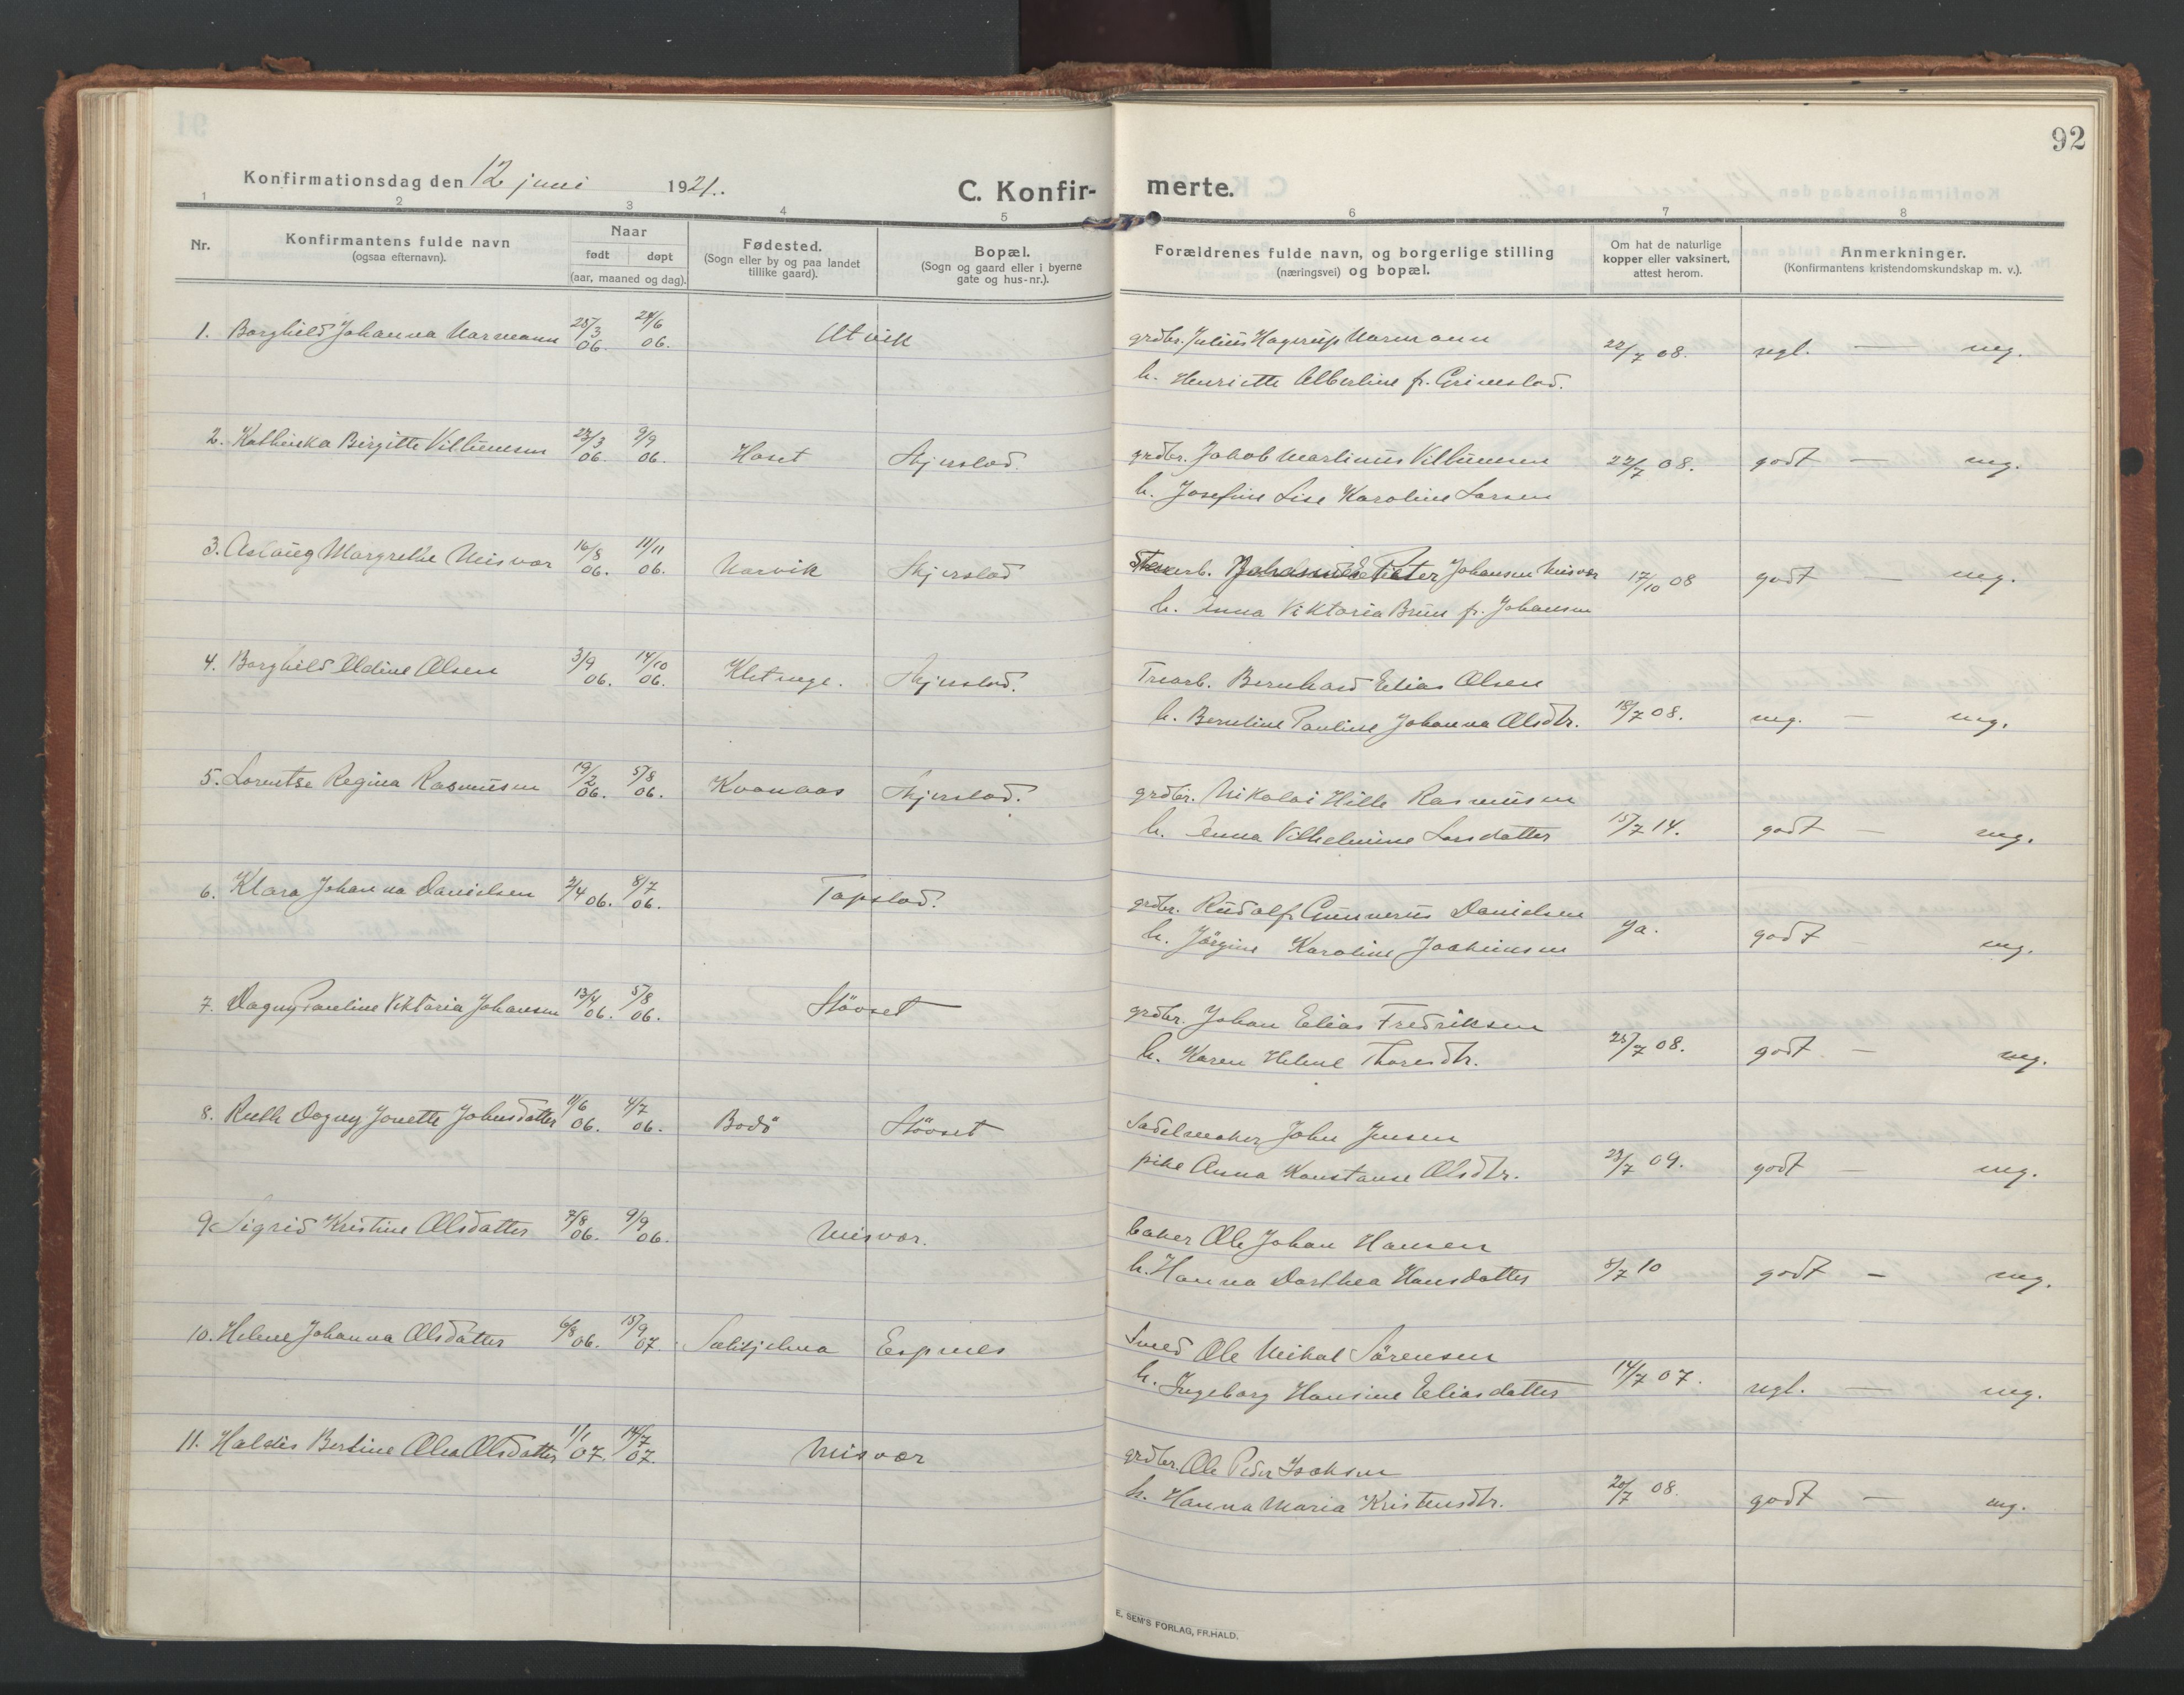 92
Konfirmationsdag den 12 juni 1921.
C. Konfir- merte.
1 2 3 4 5 6 7 8
Nr.
Konfirmantens fulde navn
(ogsaa efternavn).
Naar
født døpt
(aar, maaned og dag).
Fødested.
(Sogn eller by og paa landet
tillike gaard).
Bopæl.
(Sogn og gaard eller i byerne
gate og hus-nr.).
Forældrenes fulde navn, og borgerlige stilling
(næringsvei) og bopæl.
Om hat de naturlige
kopper eller vaksinert,
attest herom.
Anmerkninger.
(Konfirmantens kristendomskundskap m. v.).
1. Borghild Johanna Normann 28/3 06. 24/6 06. Utvik grdbr. Julius Hagerup Normann 22/7 08. regl. — mg.
h. Henriette Albertine f. Grimstad.
2. Kathinka Birgitte Villumsen 23/3 06. 9/9 06. Haset Skjerstad. grdbr. Jakob Martinus Villumsen 22/7 08. godt — mg.
h. Josefine Lise Karoline Larsen
3. Aslaug Margrethe Misvær 16/8 06. 11/11 06. Narvik Skjerstad Peter Johansen Misvær 17/10 08 godt — mg.
h. Anna Viktoria Brun f. Johansen
4. Borghild Aldine Olsen 3/9 06. 14/10 06. Kletnge. Skjerstad. Trearb. Bernhard Elias Olsen
h. Berntine Pauline Johanna Olsdtr. 18/7 08. mg. — mg.
5. Lorentse Regina Rasmussen 19/2 06. 5/8 06. Kvanaas Skjerstad. grdbr. Nikolai Hille Rasmussen
h. Anna Vilhelmine Larsdatter 15/7 14. godt — mg.
6. Klara Johanna Danielsen 2/4 06. 8/7 06. Tapstad. grdbr. Rudolf Gunnerius Danielsen
h. Jørgine Karoline Joakimsen Ja. godt — mg.
7. Dagny Pauline Viktoria Johansen 13/4 06. 5/8 06. Støvset grdbr. Johan Elias Fredriksen
h. Karen Helene Thoresdtr. 25/7 08. godt — mg.
8. Ruth Dagny Jonette Johnsdatter 11/6 06. 4/7 06. Bodö Støvset Sadelmaker John Jensen
pike Anna Konstanse Olsdtr. 23/7 09. godt — mg.
9. Sigrid Kristine Olsdatter 7/8 06. 9/9 06. Misvær. baker Ole Johan Hansen
h. Hanna Dorthea Hansdatter 8/7 10 godt — mg.
10. Helene Johanna Olsdatter 6/8 06. 15/9 07. Sulitjelma Espnes Smed Ole Mikal Sörensen
h. Ingeborg Hansine Eliasdatter 14/7 07. regl. — mg.
11. Haldis Bertine Olea Olsdatter 1/1 07. 14/7 07. Misvær grdbr. Ole Peder Isaksen
h. Hanna Maria Kristensdtr. 20/7 08. godt — mg.
E. SEM'S FORLAG, FR.HALD.